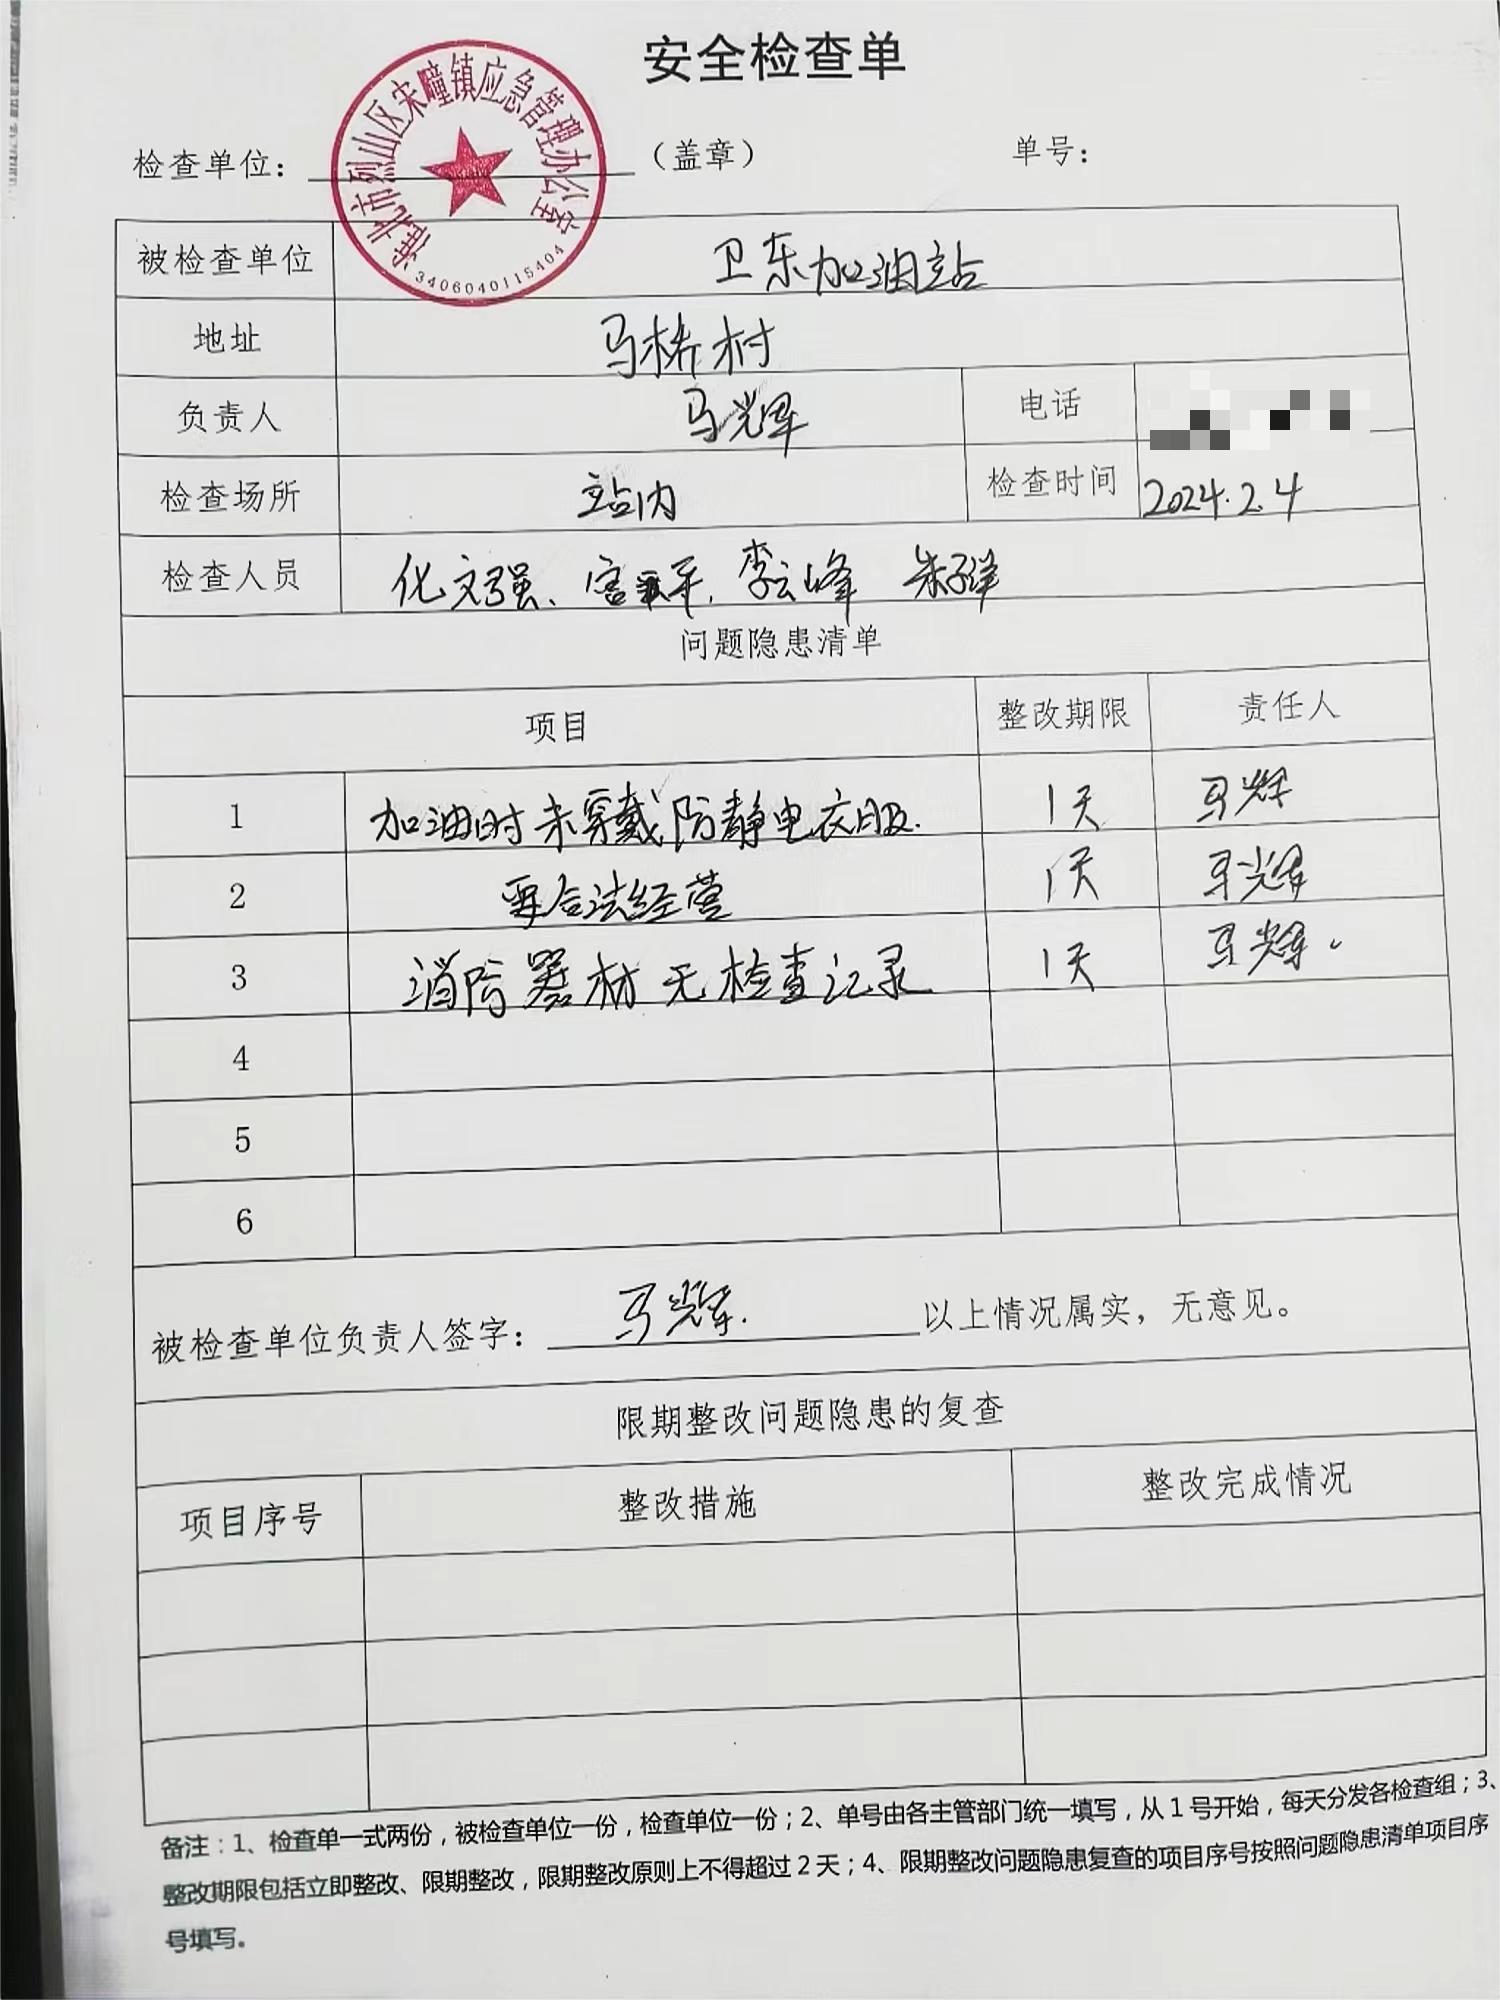 安全检查单
检查单位： （盖章） 单号：
淮北市烈山区宋疃镇应急管理办公室
3406040115404
被检查单位 卫东加油站
地址 马桥村
负责人 马光辉 电话
检查场所 站内 检查时间 2024.2.4
检查人员 化文强、宫 平, 李云峰 朱子洋
问题隐患清单
项目 整改期限 责任人
1 加油时未穿戴防静电衣服. 1天 马光辉
2 要合法经营 1天 马光辉
3 消防器材无检查记录 1天 马光辉.
4
5
6
被检查单位负责人签字： 马光辉. 以上情况属实，无意见。
限期整改问题隐患的复查
项目序号 整改措施 整改完成情况
备注：1、检查单一式两份，被检查单位一份，检查单位一份；2、单号由各主管部门统一填写，从1号开始，每天分发各检查组；3、
整改期限包括立即整改、限期整改，限期整改原则上不得超过2天；4、限期整改问题隐患复查的项目序号按照问题隐患清单项目序
号填写。